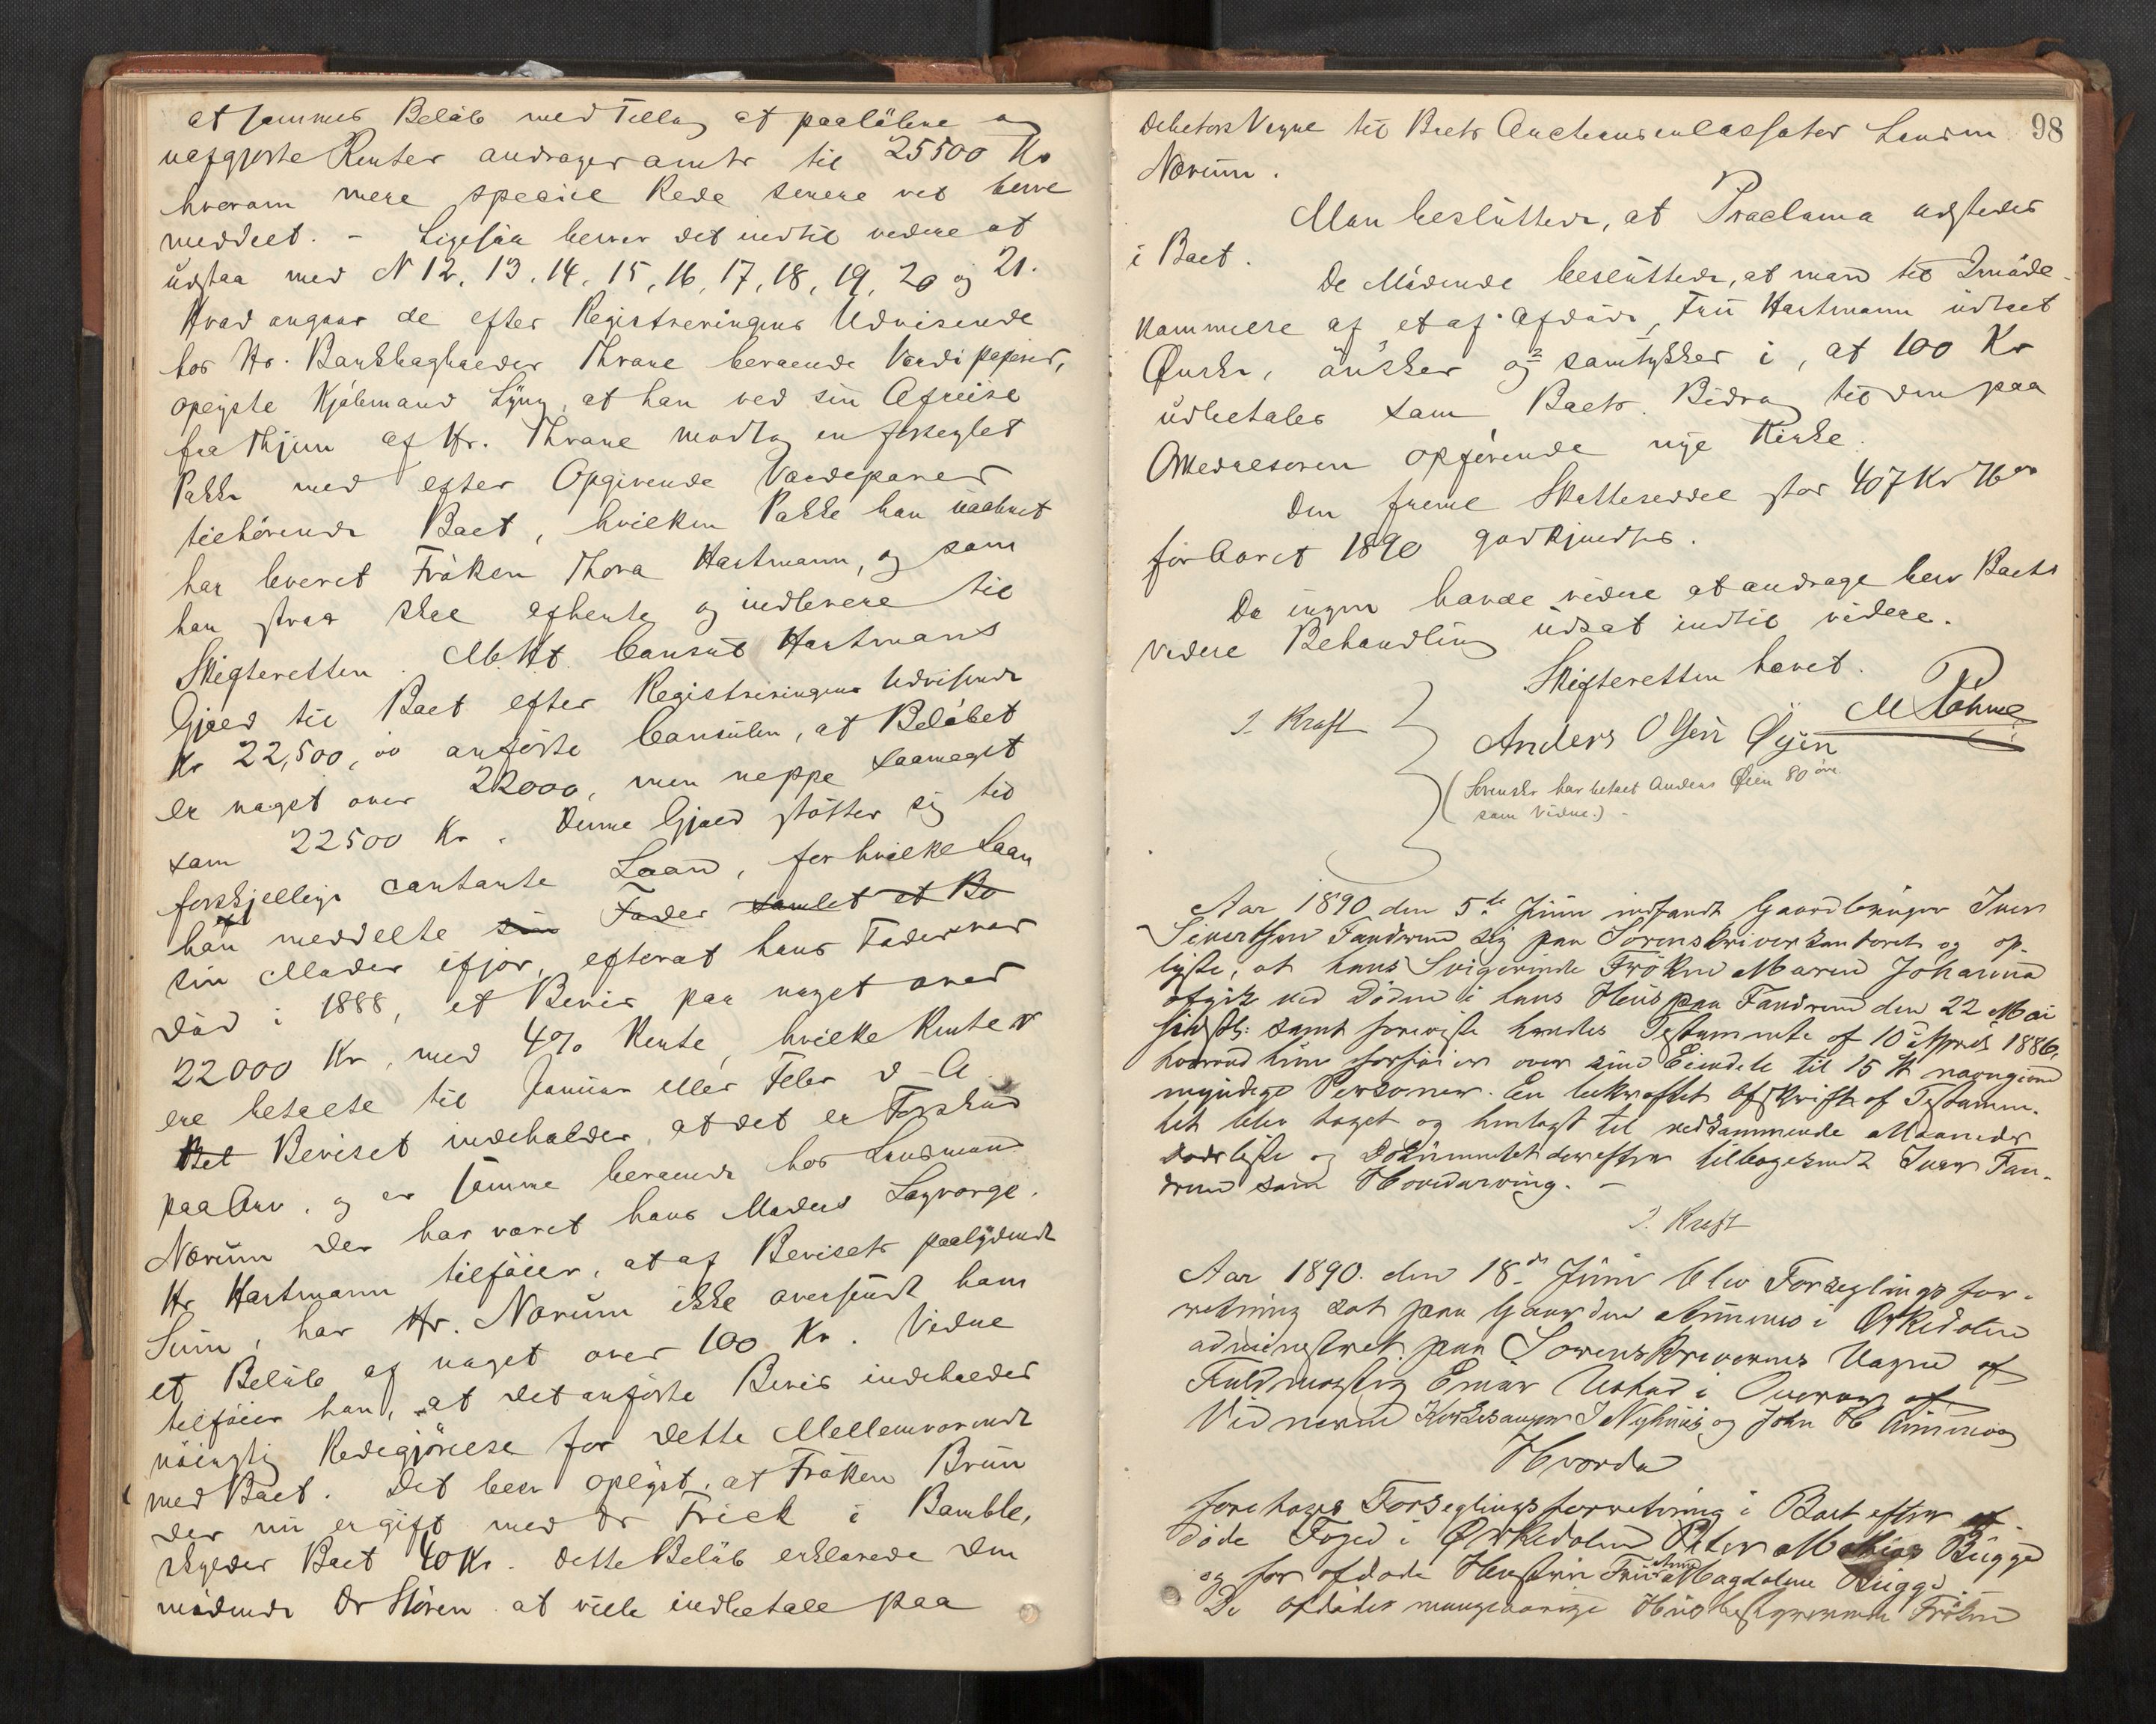 at sammes Beløb med Tillæg af paaløbne og
uafgjorte Renter andrager omtr til 25500 Kr
hvorom mere speciel Rede senere vil blive
meddelt. – Ligesaa beror det indtil videre at
udstaa med N 12, 13, 14, 15, 16, 17, 18, 19, 20 og 21.
Hvad angaar de efter Registreringens Udvisende
hos Hr. Bankbogholder Thrane beroende Værdipapirer,
oplyste Kjøbmand Lyng, at han ved sin Afreise
fra Thjem af Hr. Thrane modtog en forseglet
Pakke med efter Opgivende Værdipapirer
tilhørende Boet, hvilken Pakke han uaabnet
har leveret Frøken Thora Hartmann, og som
han strax skal afhente og indlevere til
Skifteretten. M. H. t. Consul Hartmans
Gjæld til Boet efter Registreringens Udvisende
Kr 22,500,00 anførte Consulen, at Beløbet
er noget over 22000, men neppe saameget
som 22500 Kr. Denne Gjæld støtter sig til
forskjellige contante Laan, for hvilke Laan
han meddelte sin Fader samlet et Bo
sin Moder ifjor, efterat hans Fader var
død i 1888, et Bevis paa noget over
22000 Kr, med 4% Rente, hvilke Renter
ere betalte til Januar eller Febr d. A.
Det Beviset indeholder, at det er Forskud
paa Arv, og er samme beroende hos Lensmand
Norum der har været hans Moders Lagværge.
Hr Hartmann tilføier, at af Bevisets paalydende
Sum, har Hr. Norum ikke oversendt ham
et Beløb af noget over 100 Kr. Videre
tilføier han, at det anførte Bevis indeholder
nøiagtig Redegjørelse for dette Mellemværende
med Boet. Det blev oplyst, at Frøken Brun
der nu er gift med Dr Frick i Bamble,
skylder Boet 40 Kr. Dette Beløb erklærede den
mødende Dr Støren at ville indbetale paa
98
Debetors Vegne til Boets Auctionsincassator Lensm
Norum.
Man besluttede, at Proclama udstedes
i Boet.
De Mødende besluttede, at man til Imøde-
kommelse af et af Afdøde, Fru Hartmann udtalt
Ønske, ønsker og samtykker i, at 100 Kr
udbetales som Boets Bidrag til den paa
Orkedalsøren opførende nye Kirke.
Den freml Skatteseddel stor 407 Kr 76 øre
for Aaret 1890 godkjendtes.
Da ingen havde videre at andrage blev Boets
videre Behandling udsat indtil videre.
Skifteretten hævet.
J. Kraft
Anders Olsen Øyen
(Sorenskr har betalt Anders Øien 80 øre
som Vidne.) –
Aar 1890 den 5te Juni indfandt Gaardbruger Iver
Sivertsen Fandrem sig paa Sorenskriverkontoret og op-
lyste, at hans Svigerinde Frøken Maren Johanna
afgik ved Døden i hans Hus paa Fandrem den 22 Mai
sidstl: samt foreviste hendes Testamente af 10 April 1886,
hvorved hun forføier over sine Eiendele til 15 navngivne
myndige Personer. En bekræftet Afskrift af Testamen-
tet blev taget og henlagt til vedkommende Maaneds
Dødsliste og Dokumentet derefter tilbagesendt Iver Fan-
drem som Hovedarving. –
J. Kraft
Aar 1890. den 18de Juni blev Forseglingsfor-
retning sat paa Gaarden i Orkedalen
administreret paa Sorenskriverens Vegne af
Fuldmægtig Einar i Overvær af
Vidnerne Kirkesanger J Nyhuus og John
Hvorda
foretoges Forseglingsforretning i Boet efter af-
døde Foged i Orkedalen Peter Mathias Bugge
og før afdøde Hustru Fru Anna Magdalena Bugge.
De afdødes mangeaarige Husbestyrerinde Frøken